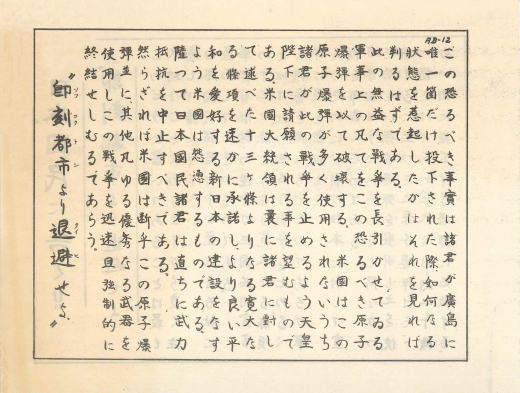 AB-12
この恐るべき事実は諸君が廣島に
唯一箇だけ投下された際如何なる
状態を惹起したかはそれを見れば
判るはずである。
此の無益な戦争を長引かせてゐる
軍事上の凡てをこの恐るべき原子
爆弾を以て破壊する。米國はこの
原子爆弾が多く使用されないうち
諸君が此の戦争を止めるよう天皇
陛下に請願される事を望むもので
ある。米國大統領は曩に諸君に対し
て述べた十三ヶ條よりなる寛大な
る條項を速かに承諾しより良い平
和を愛好する新日本の建設をなす
よう米國は慫慂するものである。
陸つて日本國民諸君は直ちに武力
抵抗を中止すべきである。
然らざれば米國は断乎この原子爆
弾並に其他凡ゆる優秀なる武器を
使用しこの戦争を迅速且強制的に
終結せしむるであらう。
"即刻都市より退避せよ"